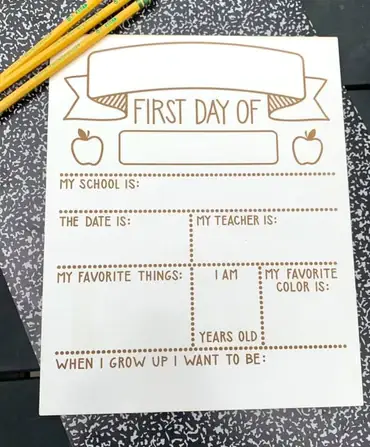 FIRST DAY OF
MY SCHOOL IS:
THE DATE IS:
MY TEACHER IS:
MY FAVORITE THINGS:
I AM
YEARS OLD
MY FAVORITE
COLOR IS:
WHEN I GROW UP I WANT TO BE: